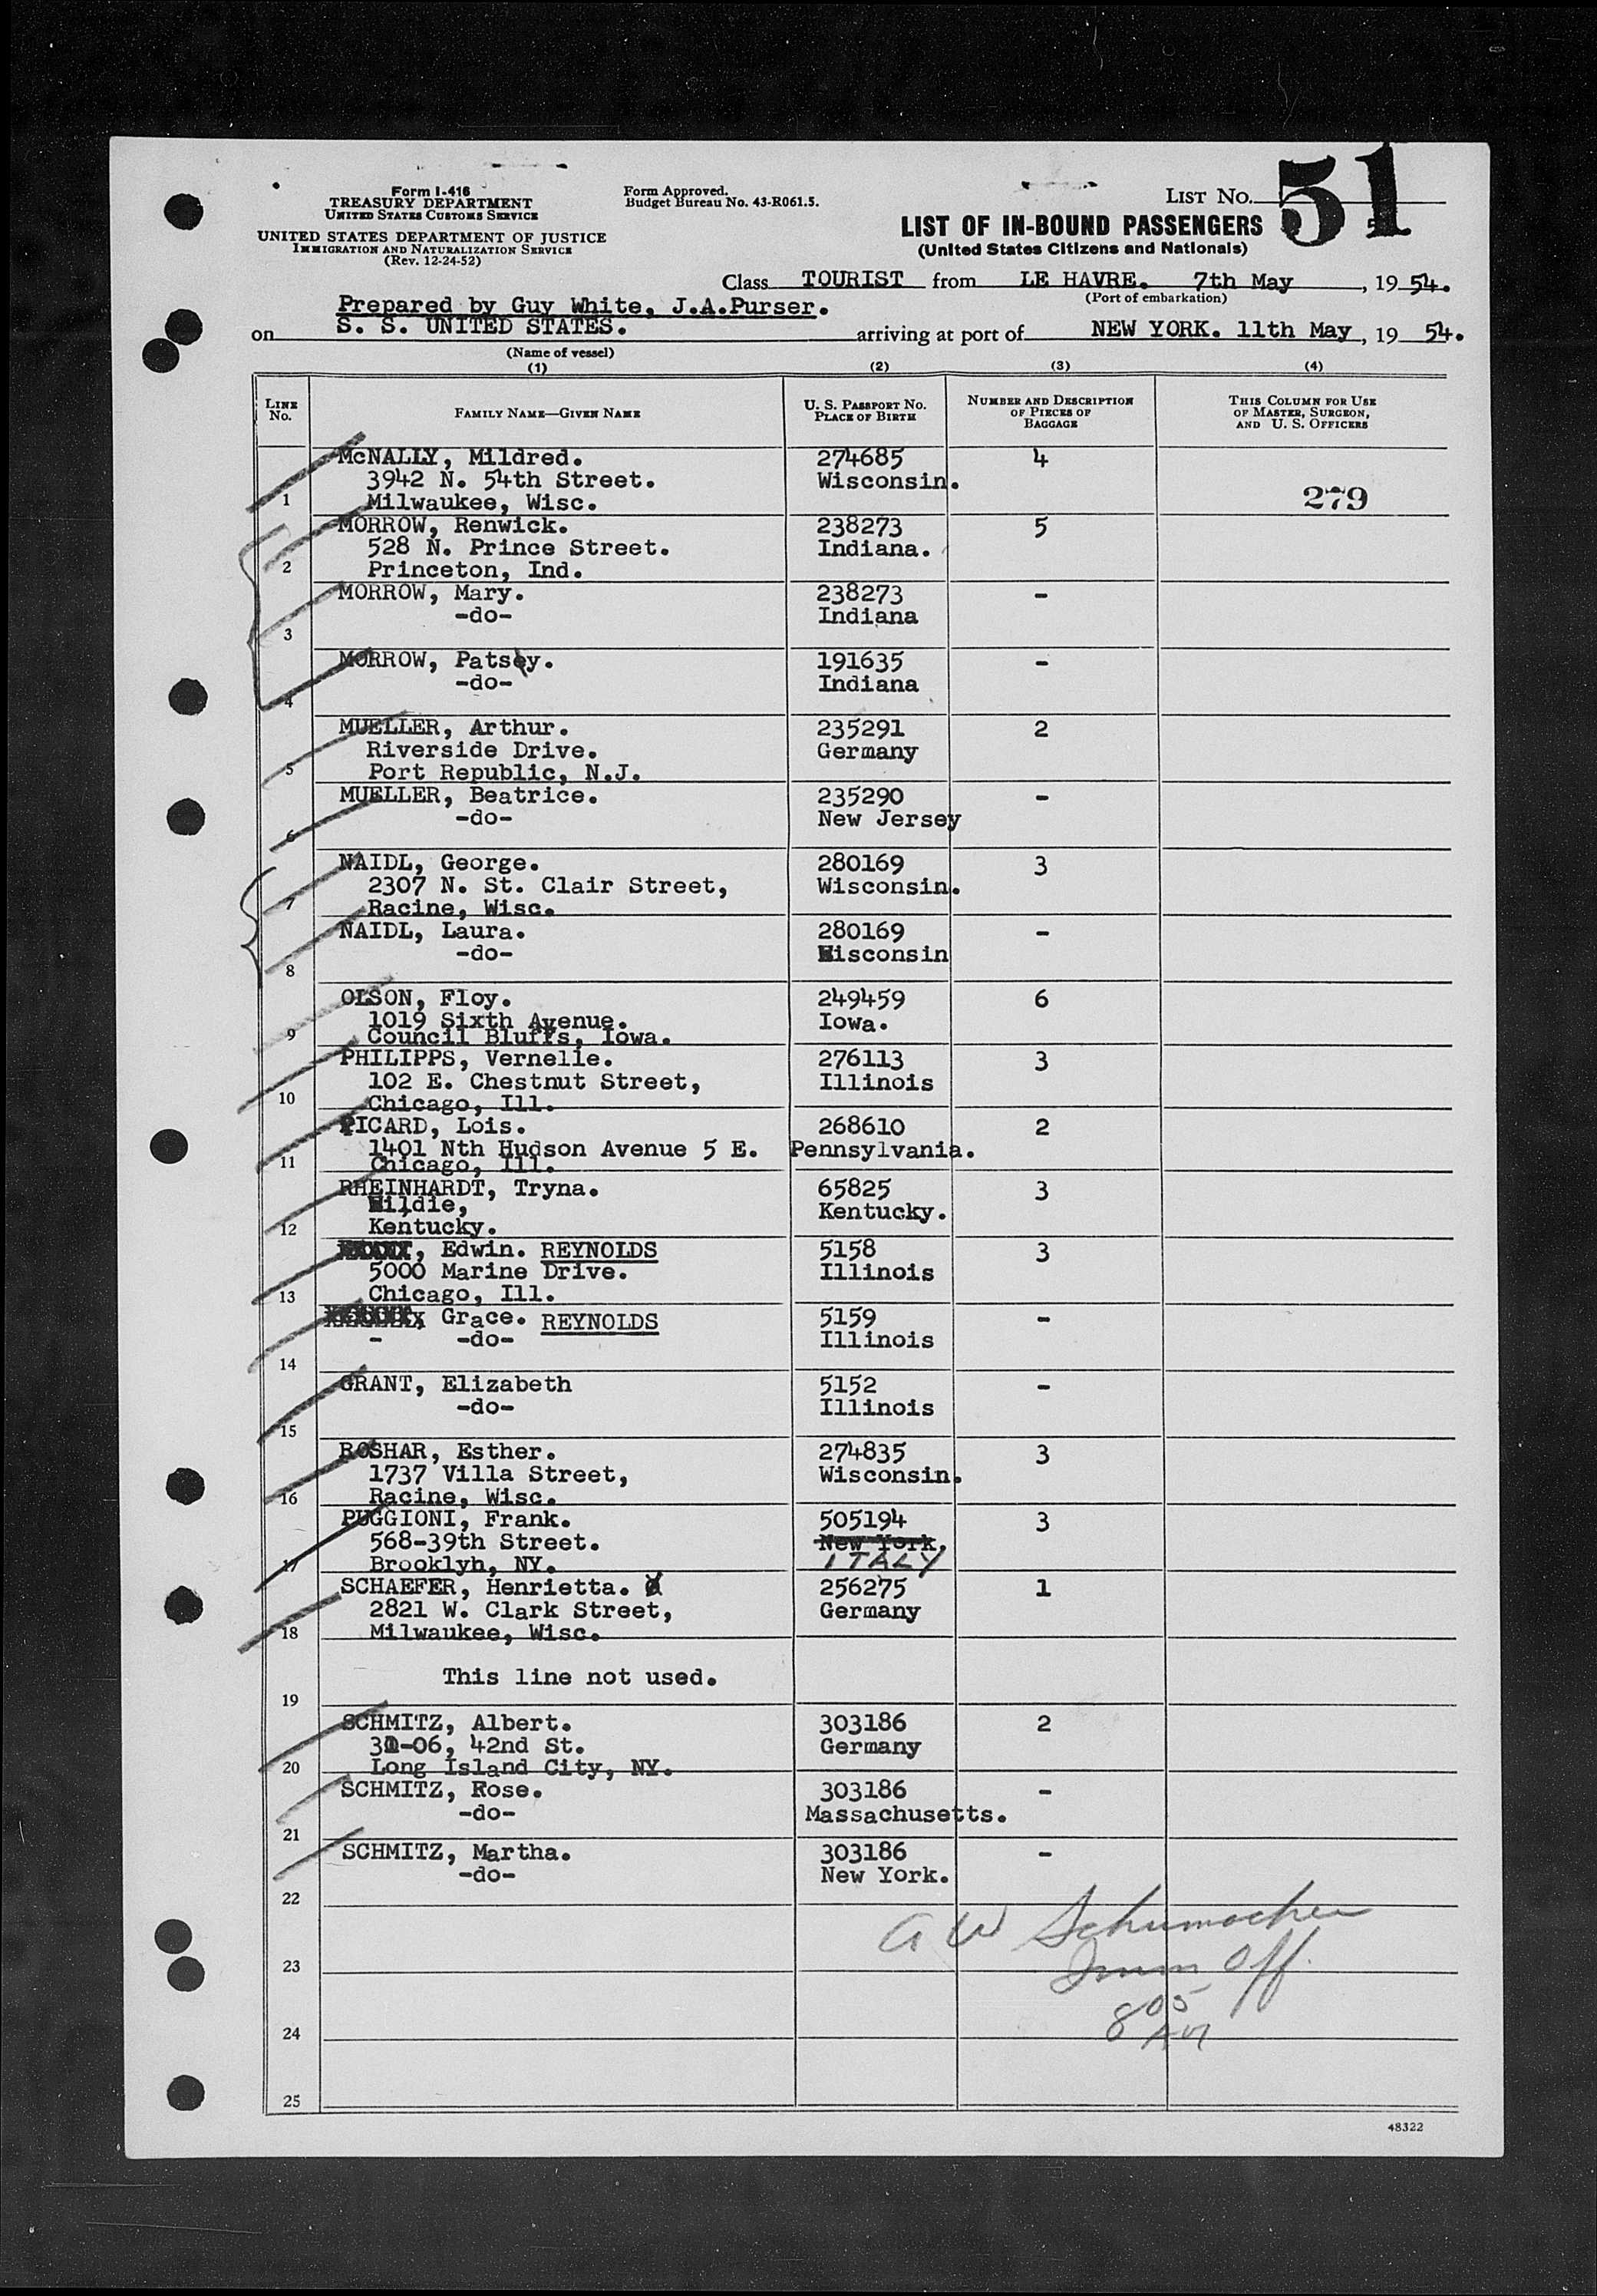 Form I-416
TREASURY DEPARTMENT
UNITED STATES CUSTOMS SERVICE
UNITED STATES DEPARTMENT OF JUSTICE
IMMIGRATION AND NATURALIZATION SERVICE
(Rev. 12-24-52)
Form Approved.
Budget Bureau No. 43-R061.5.
LIST No. 51
LIST OF IN-BOUND PASSENGERS
(United States Citizens and Nationals)
Class TOURIST from LE HAVRE. 7th May, 19 54.
(Port of embarkation)
Prepared by Guy White, J.A.Purser.
on S. S. UNITED STATES. arriving at port of NEW YORK. 11th May, 19 54.
(Name of vessel)
(1) (2) (3) (4)
LINE No. FAMILY NAME—GIVEN NAME U. S. PASSPORT NO. PLACE OF BIRTH NUMBER AND DESCRIPTION OF PIECES OF BAGGAGE THIS COLUMN FOR USE OF MASTER, SURGEON, AND U. S. OFFICERS
McNALLY, Mildred. 274685 4
3942 N. 54th Street. Wisconsin.
1 Milwaukee, Wisc. 279
MORROW, Renwick. 238273 5
528 N. Prince Street. Indiana.
2 Princeton, Ind.
MORROW, Mary. 238273 -
-do- Indiana
3
MORROW, Patsy. 191635 -
-do- Indiana
4
MUELLER, Arthur. 235291 2
Riverside Drive. Germany
5 Port Republic, N.J.
MUELLER, Beatrice. 235290 -
-do- New Jersey
6
NAIDL, George. 280169 3
2307 N. St. Clair Street, Wisconsin.
7 Racine, Wisc.
NAIDL, Laura. 280169 -
-do- Wisconsin
8
OLSON, Floy. 249459 6
1019 Sixth Avenue. Iowa.
9 Council Bluffs, Iowa.
PHILIPPS, Vernelle. 276113 3
102 E. Chestnut Street, Illinois
10 Chicago, Ill.
PICARD, Lois. 268610 2
1401 Nth Hudson Avenue 5 E. Pennsylvania.
11 Chicago, Ill.
RHEINHARDT, Tryna. 65825 3
Wildie, Kentucky.
12 Kentucky.
, Edwin. REYNOLDS 5158 3
5000 Marine Drive. Illinois
13 Chicago, Ill.
Grace. REYNOLDS 5159 -
- -do- Illinois
14
GRANT, Elizabeth 5152 -
-do- Illinois
15
ROSHAR, Esther. 274835 3
1737 Villa Street, Wisconsin.
16 Racine, Wisc.
PUGGIONI, Frank. 505194 3
568-39th Street. New York.
17 Brooklyn, NY. ITALY
SCHAEFER, Henrietta. 256275 1
2821 W. Clark Street, Germany
18 Milwaukee, Wisc.
This line not used.
19
SCHMITZ, Albert. 303186 2
-06, 42nd St. Germany
20 Long Island City, NY.
SCHMITZ, Rose. 303186 -
-do- Massachusetts.
21
SCHMITZ, Martha. 303186 -
-do- New York.
22
A W Schumacher
23 Imm Off.
8 05 AM
24
25
48322